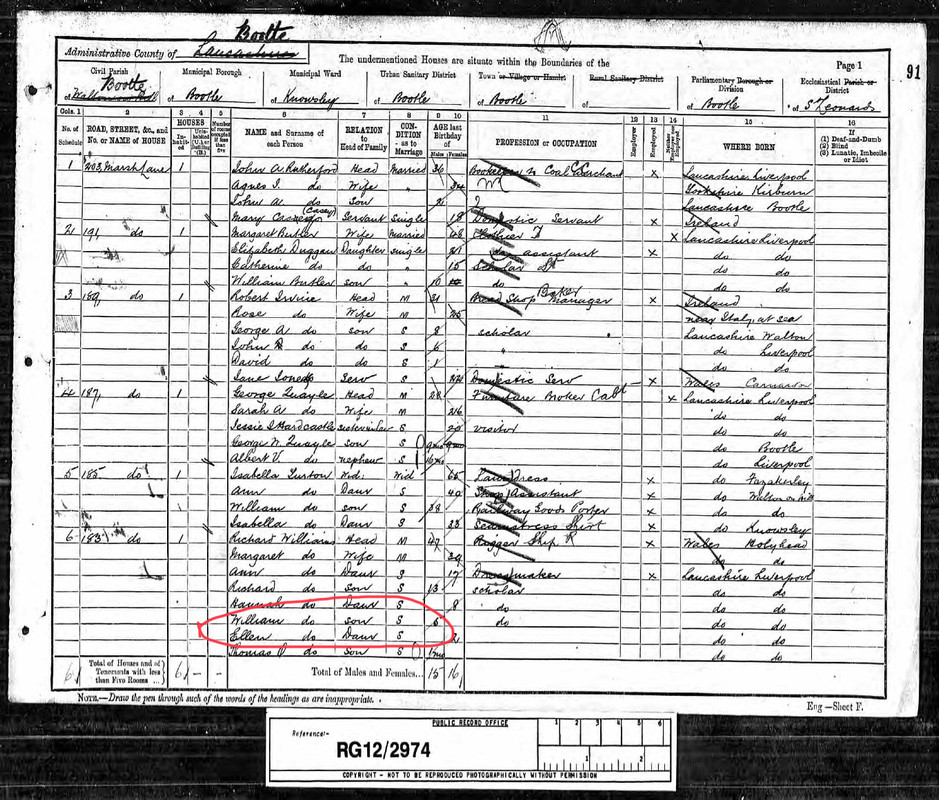 Bootle
Administrative County of Lancashire
The undermentioned Houses are situate within the Boundaries of the
Page 1
91
Civil Parish
Municipal Borough
Municipal Ward
Urban Sanitary District
Town or Village or Hamlet
Rural Sanitary District
Parliamentary Borough or Division
Ecclesiastical Parish or District
Bootle
of
of Bootle
of Knowsley
of Bootle
of Bootle
of
of Bootle
of St Leonards
Cols. 1 2 3 4 5 6 7 8 9 10 11 12 13 14 15 16
No. of Schedule
ROAD, STREET, &c., and No. or NAME of HOUSE
HOUSES
Inhabited
Uninhabited (U.), or Building (B.)
Number of rooms occupied if less than five
NAME and Surname of each Person
RELATION to Head of Family
CONDITION as to Marriage
AGE last Birthday of
Males Females
PROFESSION or OCCUPATION
Employer
Employed
Neither Employer nor Employed
WHERE BORN
If
(1) Deaf-and-Dumb
(2) Blind
(3) Lunatic, Imbecile or Idiot
1 203 Marsh Lane 1 John A Rutherford Head Married 36 Bookkeeper to Coal Merchant x Lancashire Liverpool
Agnes I. do Wife " 34 Yorkshire Kirburn
John A. do son 2 Lancashire Bootle
(Casey)
Mary Servant single 18 Domestic Servant x Ireland
2 191 do 1 Margaret Butler Wife married 48 Clothier x Lancashire Liverpool
Elizabeth Duggan Daughter single 21 do assistant x do do
Catherine do do " 15 Scholar do do
William Butler son 10 do do do
3 189 do 1 Robert Irvine Head M 31 Bread Shop Manager x Ireland
Baker
Rose do Wife M 25 near Italy at sea
George A do son S 8 scholar Lancashire Walton
John R do do S 4 " do Liverpool
David do do S 1 do do
Jane Jones Serv S 22 Domestic Serv x Wales Carnarvon
4 187 do 1 George Quayle Head M 28 Furniture Broker x Lancashire Liverpool
Sarah A do Wife M 26 do do
Jessie S Hardcastle S 20 visitor do do
George W. Quayle son S do Bootle
Albert V do nephew S do Liverpool
5 185 do 1 Isabella Turton Wid. Wid 65 Laundress x do Fazakerley
Ann do Daur S 40 Shop Assistant x do Walton on hill
William do son S 38 Railway Goods Porter x do do
Isabella do Daur S 23 Seamstress Shirt x do Knowsley
6 183 do 1 Richard Williams Head M 47 Rigger Ship x Wales Holyhead
Margaret do Wife M 39 do do
Ann do Daur S 17 Dressmaker x Lancashire Liverpool
Richard do son S 13 scholar do do
Hannah do Daur S 8 do do do
William do son S 5 do do do
Ellen do Daur S 2 do do
Thomas O do son S do do
6 Total of Houses and of Tenements with less than Five Rooms ... 6 – – Total of Males and Females... 15 16
NOTE.—Draw the pen through such of the words of the headings as are inappropriate.
Eng—Sheet F.
PUBLIC RECORD OFFICE
1 2 3 4 5 6
Reference:-
RG12/2974
COPYRIGHT - NOT TO BE REPRODUCED PHOTOGRAPHICALLY WITHOUT PERMISSION